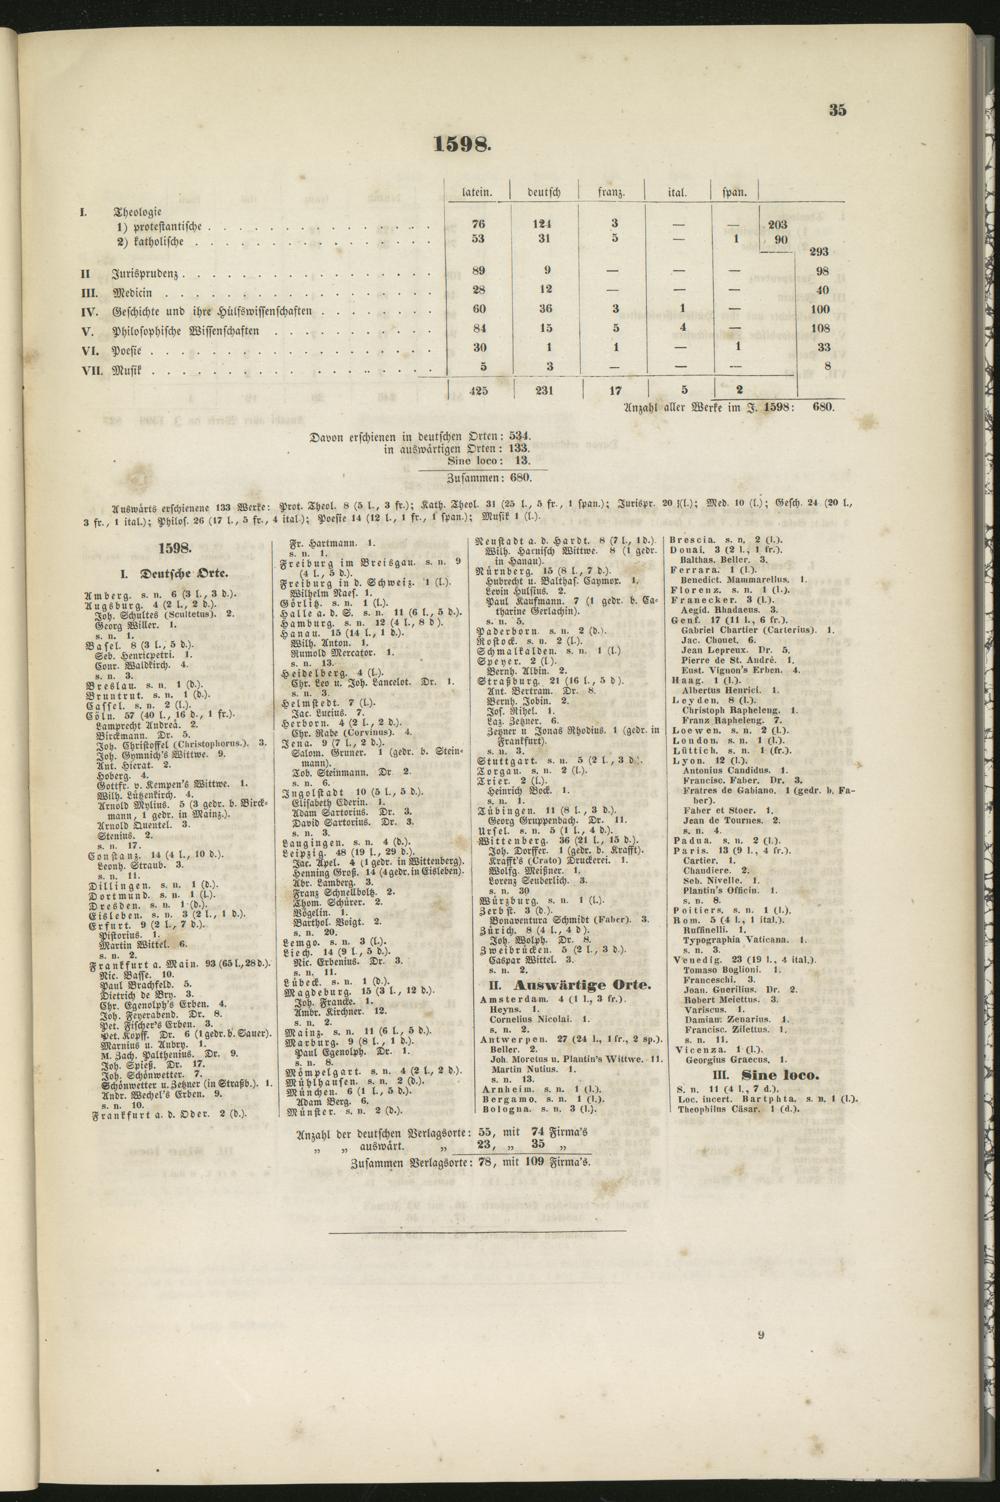 35
1598.
latein. deutsch franz. ital. span.
I. Theologie
1) protestantische 76 124 3 — — 203
2) katholische 53 31 5 — 1 90
293
II Jurisprudenz 89 9 — — — 98
III. Medicin 28 12 — — — 40
IV. Geschichte und ihre Hülfswissenschaften 60 36 3 1 — 100
V. Philosophische Wissenschaften 84 15 5 4 — 108
VI. Poesie 30 1 1 — 1 33
VII. Musik 5 3 — — — 8
425 231 17 5 2
Anzahl aller Werke im J. 1598: 680.
Davon erschienen in deutschen Orten: 534.
in auswärtigen Orten: 133.
Sine loco: 13.
Zusammen: 680.
Auswärts erschienene 133 Werke: Prot. Theol. 8 (5 l., 3 fr.); Kath. Theol. 31 (25 l., 5 fr., 1 span.); Jurispr. 20 (l.); Med. 10 (l.); Gesch. 24 (20 l.,
3 fr., 1 ital.); Philos. 26 (17 l., 5 fr., 4 ital.); Poesie 14 (12 l., 1 fr., 1 span.); Musik 1 (l.).
1598.
I. Deutsche Orte.
Amberg. s. n. 6 (3 l., 3 d.).
Augsburg. 4 (2 l., 2 d.).
Joh. Schultes (Scultetus). 2.
Georg Willer. 1.
s. n. 1.
Basel. 8 (3 l., 5 d.).
Seb. Henricpetri. 1.
Conr. Waldkirch. 4.
s. n. 3.
Breslau. s. n. 1 (d.).
Bruntrut. s. n. 1 (d.).
Cassel. s. n. 2 (d.).
Cöln. 57 (40 l., 16 d., 1 fr.).
Lamprecht Andreä. 2.
Birckmann. Dr. 5.
Joh. Christoffel (Christophorus.). 3.
Joh. Gymnich's Wittwe. 9.
Ant. Hierat. 2.
Hoberg. 4.
Gottfr. v. Kempen's Wittwe. 1.
Wilh. Lützenkirch. 4.
Arnold Mylius. 5 (3 gedr. b. Birck-
mann, 1 gedr. in Mainz.).
Arnold Quentel. 3.
Stenius. 2.
s. n. 17.
Constanz. 14 (4 l., 10 d.).
Leonh. Straub. 3.
s. n. 11.
Dillingen. s. n. 1 (d.).
Dortmund. s. n. 1 (l.).
Dresden. s. n. 1 (d.).
Eisleben. s. n. 3 (2 l., 1 d.).
Erfurt. 9 (2 l., 7 d.).
Pistorius. 1.
Martin Wittel. 6.
s. n. 2.
Frankfurt a. Main. 93 (65 l., 28 d.).
Nic. Basse. 10.
Paul Brachfeld. 5.
Dietrich de Bry. 3.
Chr. Egenolph's Erben. 4.
Joh. Feyerabend. Dr. 8.
Pet. Fischer's Erben. 3.
Pet. Kopff. Dr. 6 (1 gedr. b. Sauer).
Marnius u. Aubry. 1.
M. Zach. Palthenius. Dr. 9.
Joh. Spieß. Dr. 17.
Joh. Schönwetter. 7.
Schönwetter u. Zetzner (in Straßb.). 1.
Andr. Wechel's Erben. 9.
s. n. 10.
Frankfurt a. d. Oder. 2 (d.).
Fr. Hartmann. 1.
s. n. 1.
Freiburg im Breisgau. s. n. 9
(4 l., 5 d.).
Freiburg in d. Schweiz. 1 (l.).
Wilhelm Maes. 1.
Görlitz. s. n. 1 (l.).
Halle a. d. S. s. n. 11 (6 l., 5 d.).
Hamburg. s. n. 12 (4 l., 8 d).
Hanau. 15 (14 l., 1 d.).
Wilh. Anton. 1.
Rumold Mercator. 1.
s. n. 13.
Heidelberg. 4 (l.).
Chr. Leo u. Joh. Lancelot. Dr. 1.
s. n. 3.
Helmstedt. 7 (l.).
Jac. Lucius. 7.
Herborn. 4 (2 l., 2 d.).
Chr. Rabe (Corvinus). 4.
Jena. 9 (7 l., 2 d.).
Salom. Gruner. 1 (gedr. b. Stein-
mann).
Tob. Steinmann. Dr 2.
s. n. 6.
Ingolstadt 10 (5 l., 5 d.).
Elisabeth Ederin. 1.
Adam Sartorius. Dr. 3.
David Sartorius. Dr. 3.
s. n. 3.
Laugingen. s. n. 4 (d.).
Leipzig. 48 (19 l., 29 d.).
Jac. Apel. 4 (1 gedr. in Wittenberg).
Henning Groß. 14 (4 gedr. in Eisleben).
Abr. Lamberg. 3.
Franz Schnellboltz. 2.
Thom. Schürer. 2.
Vögelin. 1.
Barthol. Voigt. 2.
s. n. 20.
Lemgo. s. n. 3 (l.).
Liech. 14 (9 l., 5 d.).
Nic. Erbenius. Dr. 3.
s. n. 11.
Lübeck. s. n. 1 (d.).
Magdeburg. 15 (3 l., 12 d.).
Joh. Francke. 1.
Ambr. Kirchner. 12.
s. n. 2.
Mainz. s. n. 11 (6 l., 5 d.).
Marburg. 9 (8 l., 1 d.).
Paul Egenolph. Dr. 1.
s. n. 8.
Mömpelgart. s. n. 4 (2 l., 2 d.).
Mühlhausen. s. n. 2 (d.).
München. 6 (1 l., 5 d.).
Adam Berg. 6.
Münster. s. n. 2 (d.).
Neustadt a. d. Hardt. 8 (7 l., 1 d.).
Wilh. Harnisch Wittwe. 8 (1 gedr.
in Hanau).
Nürnberg. 15 (8 l., 7 d.).
Hubrecht u. Balthas. Caymox. 1.
Levin Hulsius. 2.
Paul Kaufmann. 7 (1 gedr. b. Ca-
tharine Gerlachin).
s. n. 5.
Paderborn. s. n. 2 (d.).
Rostock. s. n. 2 (l.).
Schmalkalden. s. n. 1 (l.)
Speyer. 2 (l.).
Bernh. Albin. 2.
Straßburg. 21 (16 l., 5 d).
Ant. Bertram. Dr. 8.
Bernh. Jobin. 2.
Jos. Rihel. 1.
Laz. Zetzner. 6.
Zetzner u Jonas Rhodius. 1 (gedr. in
Frankfurt).
s. n. 3.
Stuttgart. s. n. 5 (2 l., 3 d.).
Torgau. s. n. 2 (l.).
Trier. 2 (l.).
Heinrich Bock. 1.
s. n. 1.
Tübingen. 11 (8 l., 3 d.).
Georg Gruppenbach. Dr. 11.
Ursel. s. n. 5 (1 l., 4 d.).
Wittenberg. 36 (21 l., 15 d.).
Joh. Dorffer. 1 (gedr. b. Krafft).
Krafft's (Crato) Druckerei. 1.
Wolfg. Meißner. 1.
Lorenz Seuberlich. 3.
s. n. 30
Würzburg. s. n. 1 (l.).
Zerbst. 3 (d.).
Bonaventura Schmidt (Faber). 3.
Zürich. 8 (4 l., 4 d).
Joh. Wolph. Dr. 8.
Zweibrücken. 5 (2 l., 3 d.).
Caspar Wittel. 3.
s. n. 2.
II. Auswärtige Orte.
Amsterdam. 4 (1 l., 3 fr.).
Heyns. 1.
Cornelius Nicolai. 1.
s. n. 2.
Antwerpen. 27 (24 l., 1 fr., 2 sp.).
Beller. 2.
Joh. Moretus u. Plantin's Wittwe. 11.
Martin Nutius. 1.
s. n. 13.
Arnheim. s. n. 1 (l.).
Bergamo. s. n. 1 (l.).
Bologna. s. n. 3 (l.).
Brescia. s. n. 2 (l.).
Douai. 3 (2 l., 1 fr.).
Balthas. Beller. 3.
Ferrara. 1 (l.).
Benedict. Mammarellus. 1.
Florenz. s. n. 1 (l.).
Franecker. 3 (l.).
Aegid. Rhadaeus. 3.
Genf. 17 (11 l., 6 fr.).
Gabriel Chartier (Carterius). 1.
Jac. Chouet. 6.
Jean Lepreux. Dr. 5.
Pierre de St. André. 1.
Eust. Vignon's Erben. 4.
Haag. 1 (l.).
Albertus Henrici. 1.
Leyden. 8 (l.).
Christoph Rapheleng. 1.
Franz Rapheleng. 7.
Loewen. s. n. 2 (l.).
London. s. n. 1 (l.).
Lüttich. s. n. 1 (fr.).
Lyon. 12 (l.).
Antonius Candidus. 1.
Francisc. Faber. Dr. 3.
Fratres de Gabiano. 1 (gedr. b. Fa-
ber).
Faber et Stoer. 1.
Jean de Tournes. 2.
s. n. 4.
Padua. s. n. 2 (l.).
Paris. 13 (9 l., 4 fr.).
Cartier. 1.
Chaudiere. 2.
Seb. Nivelle. 1.
Plantin's Officin. 1.
s. n. 8.
Poitiers. s. n. 1 (l.).
Rom. 5 (4 l., 1 ital.).
Ruffinelli. 1.
Typographia Vaticana. 1.
s. n. 3.
Venedig. 23 (19 l., 4 ital.).
Tomaso Boglioni. 1.
Franceschi. 3.
Joan. Guerilius. Dr. 2.
Robert Meiettus. 3.
Variscus. 1.
Damian. Zenarius. 1.
Francisc. Zilettus. 1.
s. n. 11.
Vicenza. 1 (l.).
Georgius Graecus. 1.
III. Sine loco.
S. n. 11 (4 l., 7 d.).
Loc. incert. Bartphta. s. n. 1 (l.).
Theophilus Cäsar. 1 (d.).
Anzahl der deutschen Verlagsorte: 55, mit 74 Firma's
„ „ auswärt. „ 23, „ 35 „
Zusammen Verlagsorte: 78, mit 109 Firma's.
9